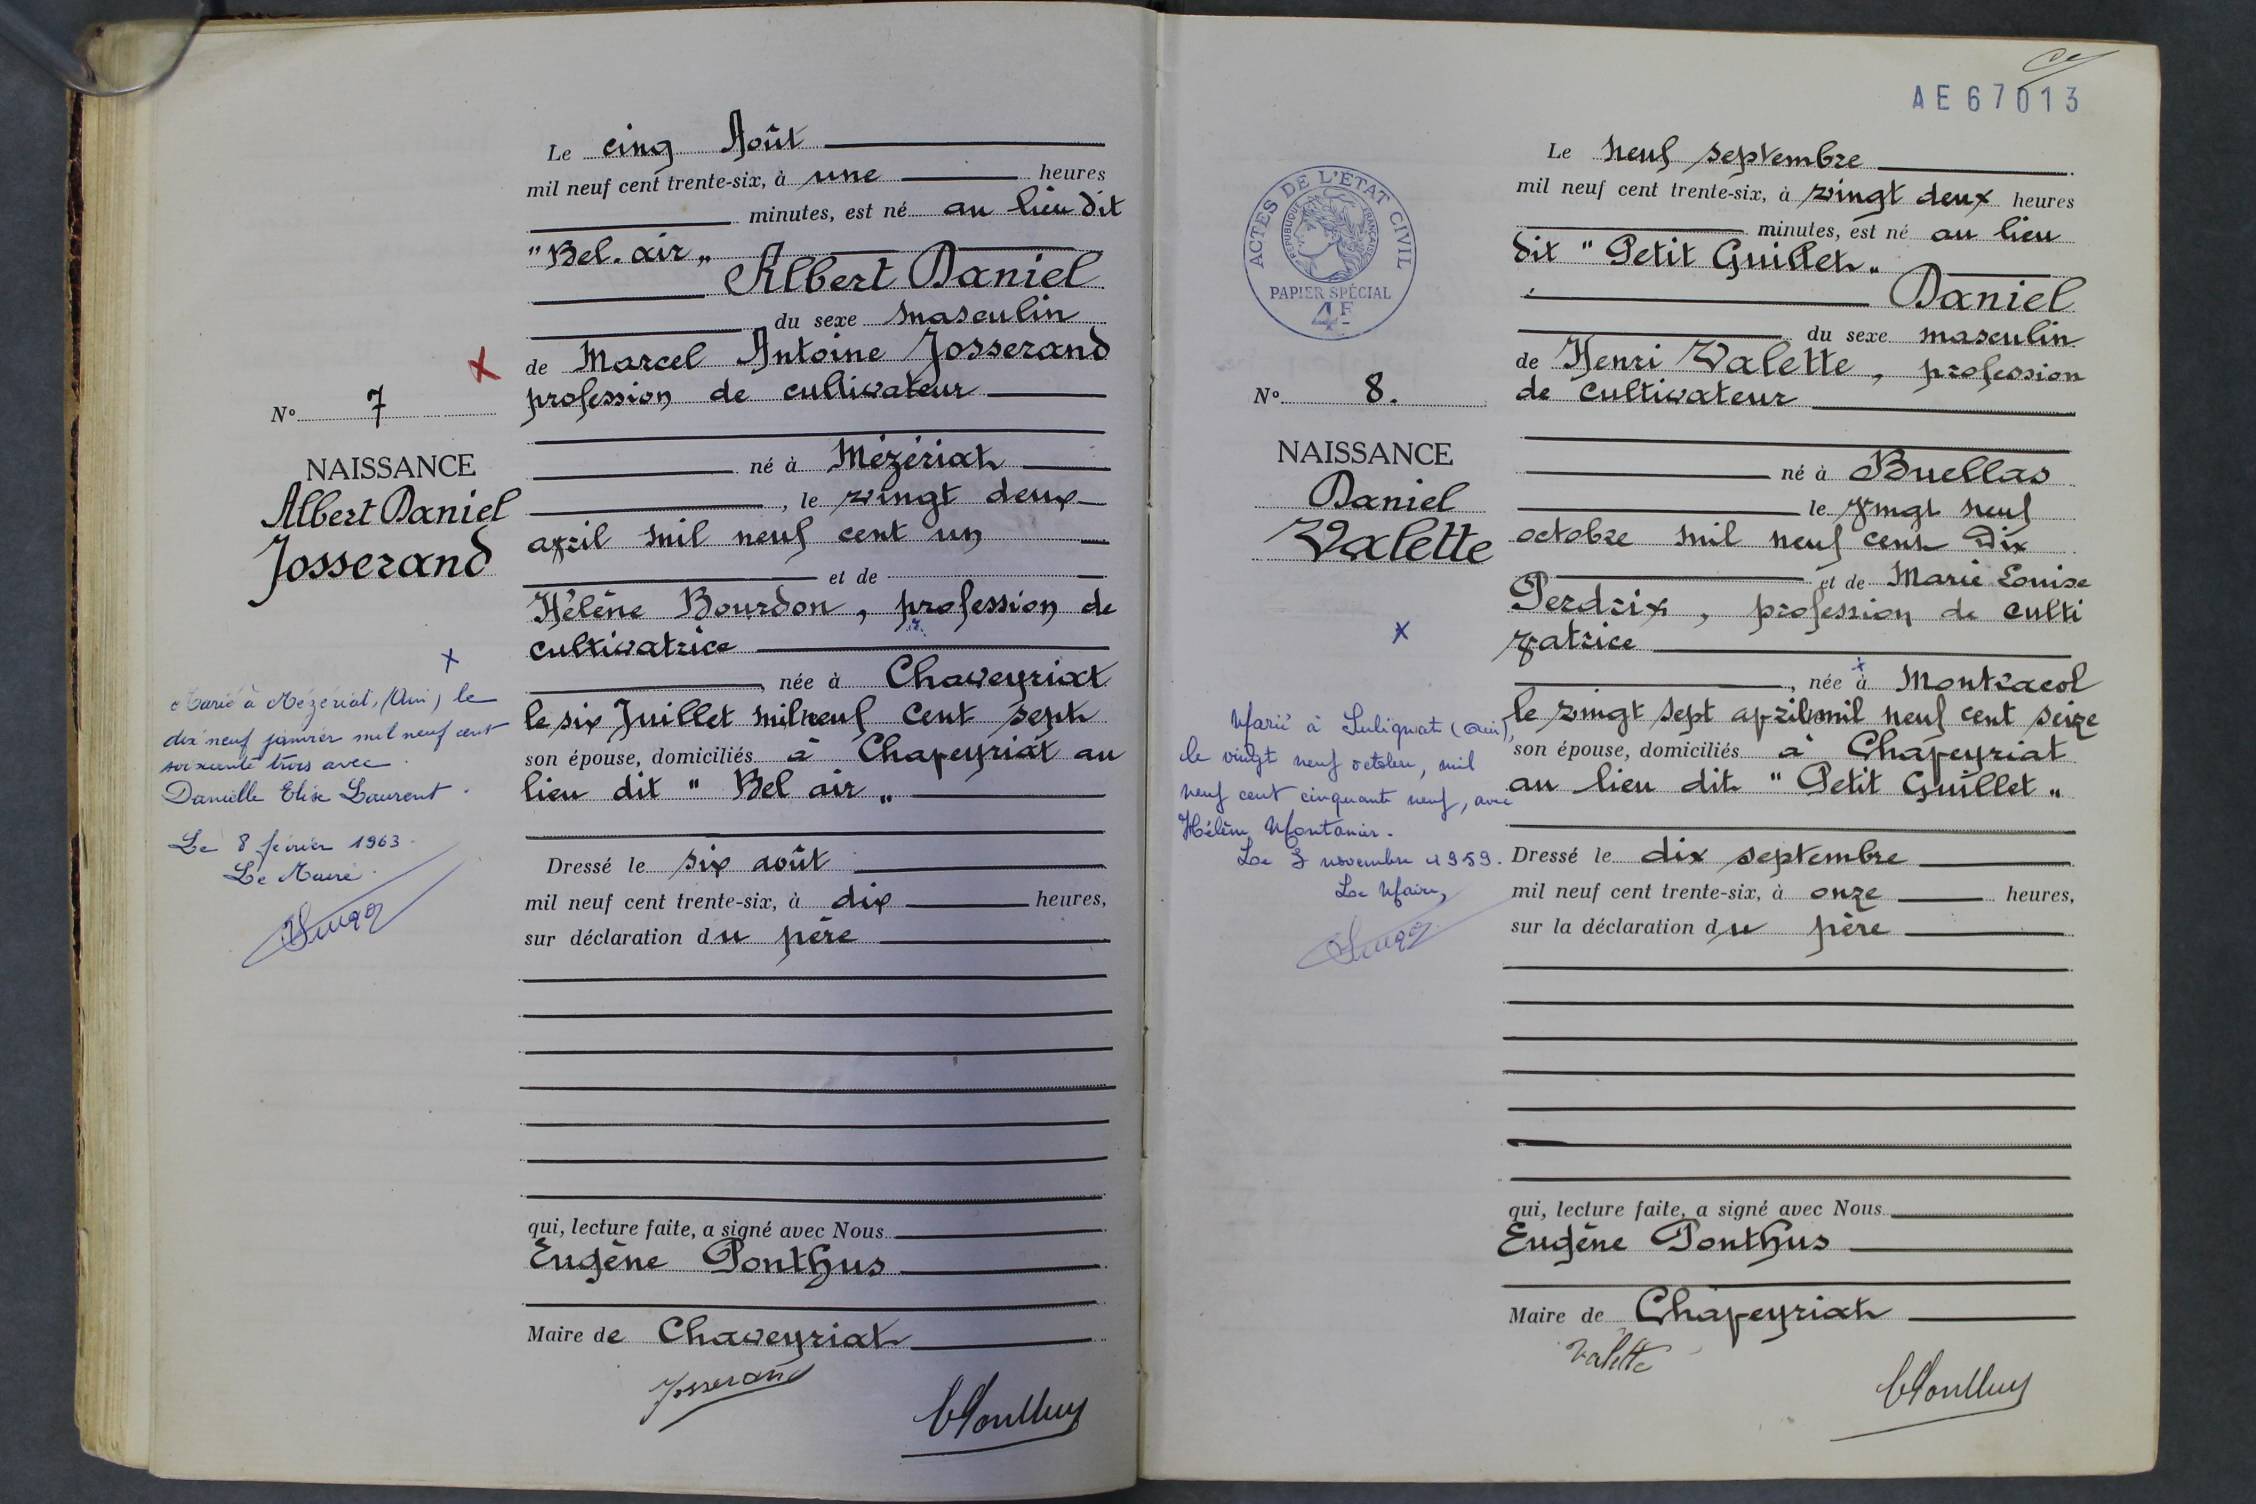 Le cinq Août
mil neuf cent trente-six, à une heures
minutes, est né au lieu dit
"Bel. air"
Albert Daniel
du sexe masculin
de Marcel Antoine Josserand
profession de cultivateur
né à Mézériat
, le vingt deux
avril mil neuf cent un
et de
Hélène Bourdon, profession de
cultivatrice
, née à Chaveyriat
le six Juillet mil neuf cent sept
son épouse, domiciliés à Chaveyriat au
lieu dit "Bel air"
Dressé le six août
mil neuf cent trente-six, à dix heures,
sur déclaration du père
qui, lecture faite, a signé avec Nous
Eugène Ponthus
Maire de Chaveyriat
Josserand
N° 7
NAISSANCE
Albert Daniel
Josserand
Marié à Mézériat, (Ain) le
dix neuf janvier mil neuf cent
soixante trois avec
Danielle Elise Laurent.
Le 8 février 1963.
Le Maire.
AE67013
ACTES DE L'ETAT CIVIL
REPUBLIQUE FRANÇAISE
PAPIER SPÉCIAL
4F
Le neuf septembre
mil neuf cent trente-six, à vingt deux heures
minutes, est né au lieu
dit "Petit Guillet"
Daniel
du sexe masculin
de Henri Valette, profession
de cultivateur
né à Buellas
le vingt neuf
octobre mil neuf cent dix
et de Marie Louise
Perdrix, profession de culti
vatrice
, née à Montracol
le vingt sept avril mil neuf cent seize
son épouse, domiciliés à Chaveyriat
au lieu dit "Petit Guillet"
Dressé le dix septembre
mil neuf cent trente-six, à onze heures,
sur la déclaration du père
qui, lecture faite, a signé avec Nous
Eugène Ponthus
Maire de Chaveyriat
Valette
N° 8.
NAISSANCE
Daniel
Valette
Marié à Sulignat (Ain),
le vingt neuf octobre, mil
neuf cent cinquante neuf, avec
Hélène Montanier.
Le novembre 1959.
Le Maire,